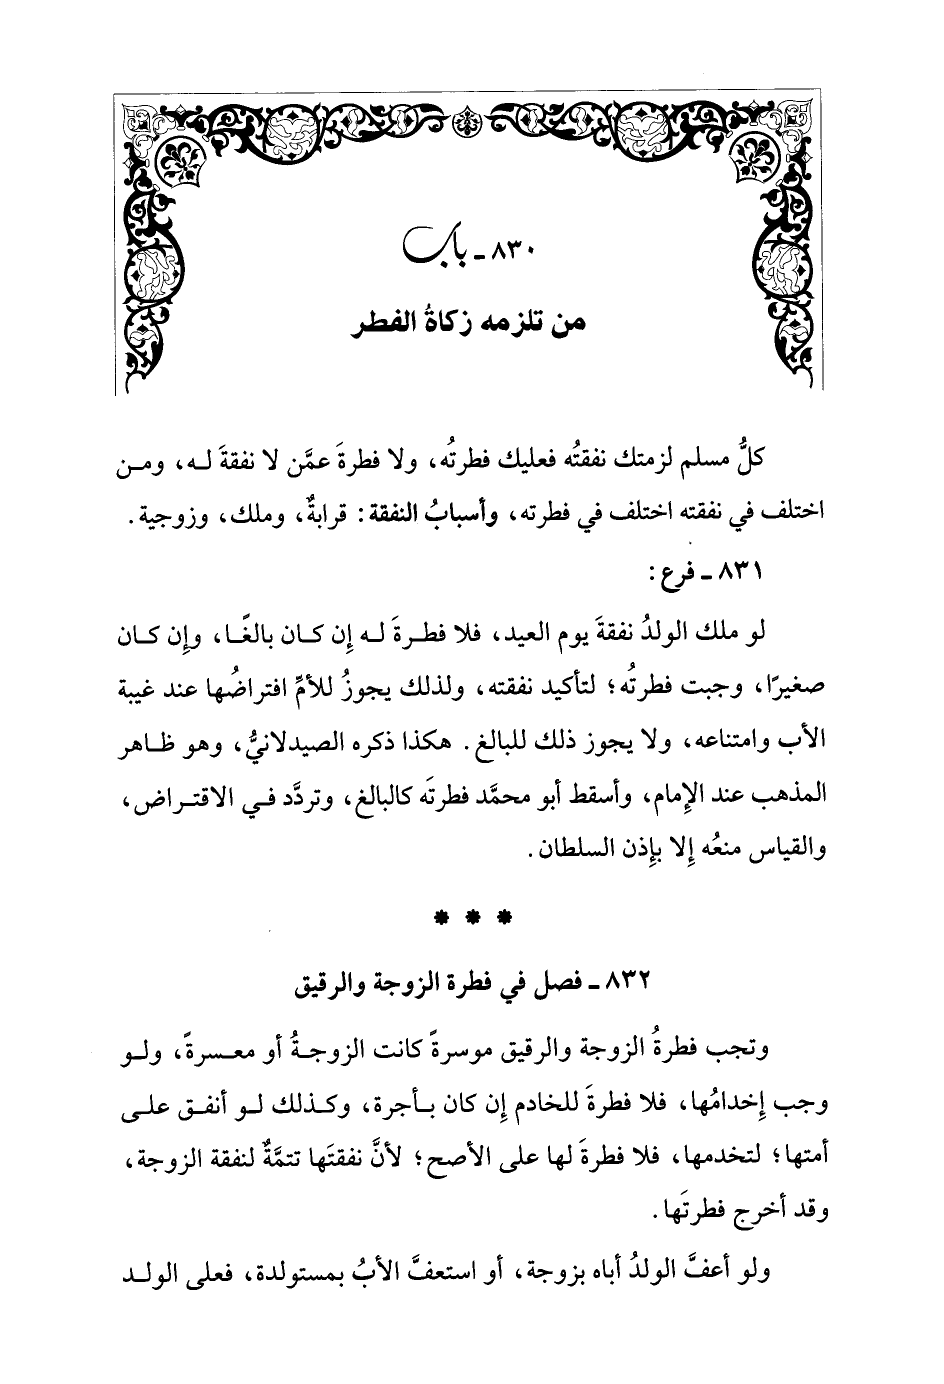 ٨٣٠ ـ باب
من تلزمه زكاةُ الفطر
كلُّ مسلم لزمتك نفقتُه فعليك فطرتُه، ولا فطرةَ عمَّن لا نفقةَ لـه، ومـن
اختلف في نفقته اختلف في فطرته، وأسبابُ النفقة: قرابةٌ، وملك، وزوجية.
٨٣١ ـ فرع:
لو ملك الولدُ نفقةَ يوم العيد، فلا فطـرةَ لـه إِن كـان بالغًـا، وإِن كـان
صغيرًا، وجبت فطرتُه؛ لتأكيد نفقته، ولذلك يجوزُ للأمِّ افتراضُها عند غيبة
الأب وامتناعه، ولا يجوز ذلك للبالغ. هكذا ذكره الصيدلانيُّ، وهو ظـاهر
المذهب عند الإمام، وأسقط أبو محمَّد فطرتَه كالبالغ، وتردَّد فـي الاقتـراض،
والقياس منعُه إِلا بإِذن السلطان.
* * *
٨٣٢ ـ فصل في فطرة الزوجة والرقيق
وتجب فطرةُ الزوجة والرقيق موسرةً كانت الزوجـةُ أو معـسرةً، ولـو
وجب إِخدامُها، فلا فطرةَ للخادم إِن كان بـأجرة، وكـذلك لـو أنفـق علـى
أمتها؛ لتخدمها، فلا فطرةَ لها على الأصح؛ لأنَّ نفقتَها تتمَّةٌ لنفقة الزوجة،
وقد أخرج فطرتَها.
ولو أعفَّ الولدُ أباه بزوجة، أو استعفَّ الأبُ بمستولدة، فعلى الولـد